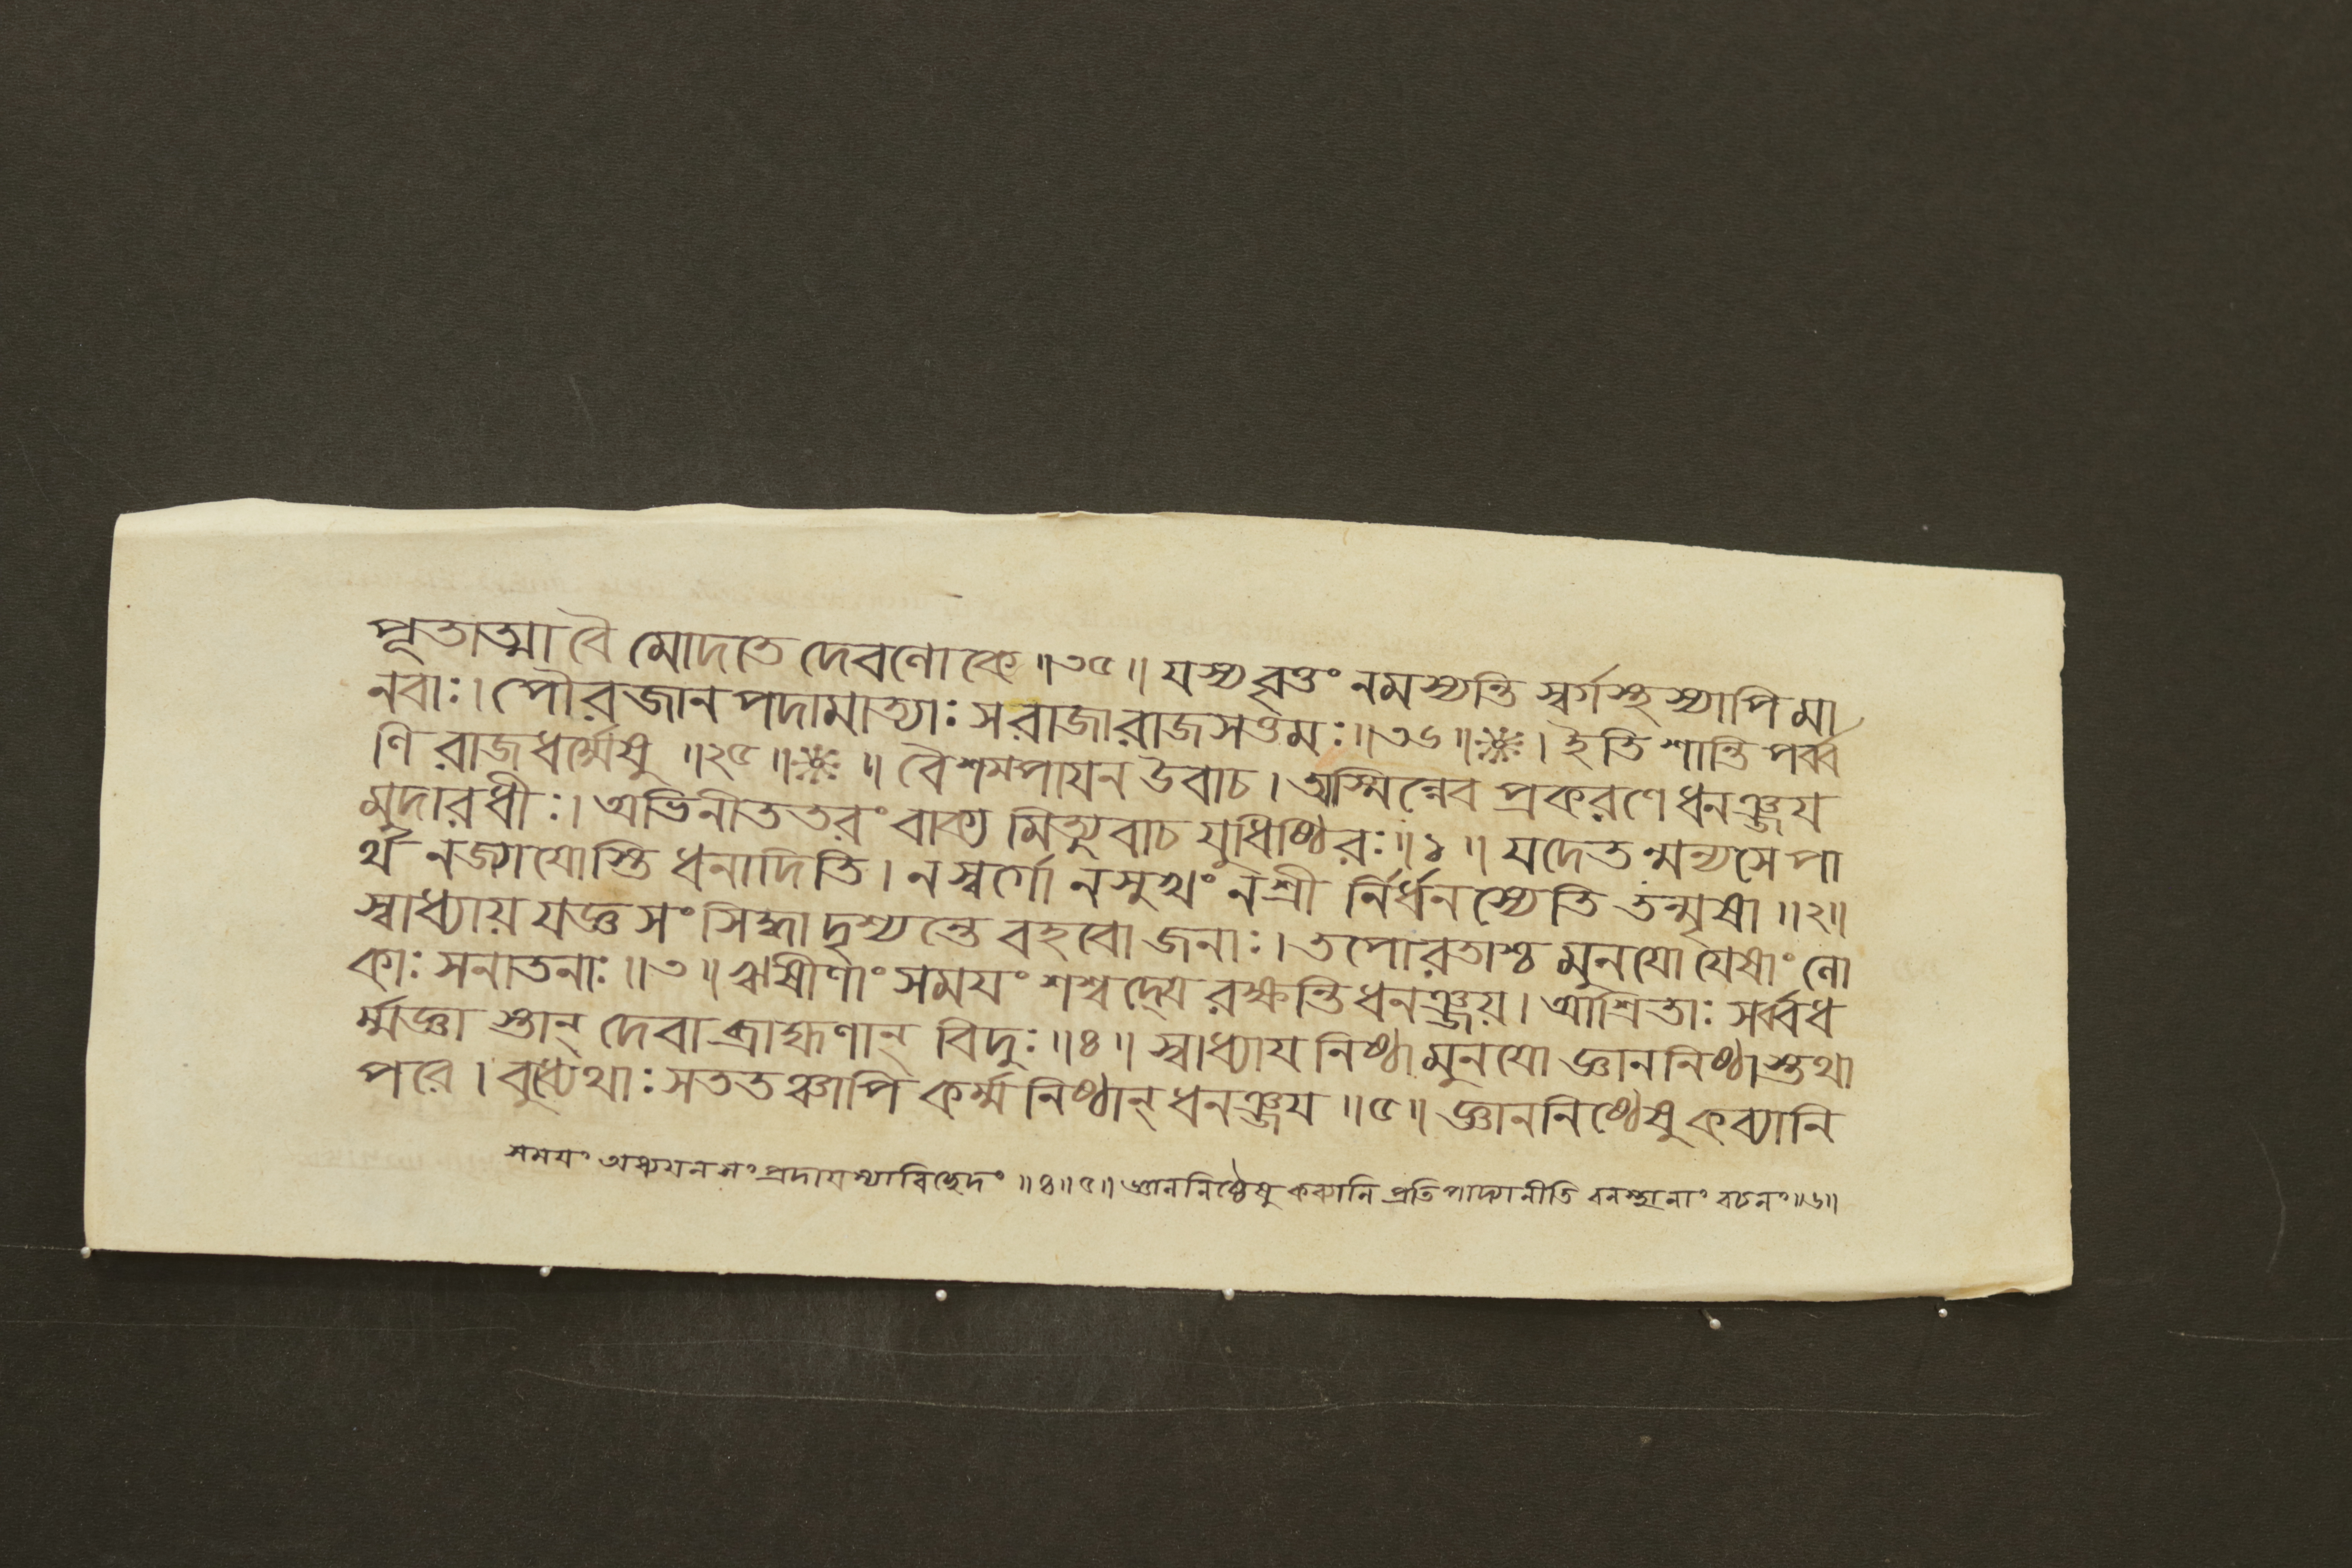 পূতাত্মা বৈ মোদতে দেবলোকে ॥৩৫॥ যস্য বৃত্তং নমস্যন্তি স্বর্গস্থস্যাপি মা
নবাঃ। পৌরজানপদামাত্যাঃ স রাজা রাজসত্তমঃ ॥৩৬॥❈। ইতি শান্তিপর্ব্ব
ণি রাজধর্ম্মেষু ॥২৫॥❈॥ বৈশম্পাযন উবাচ। অস্মিন্নেব প্রকরণে ধনঞ্জয
মুদারধীঃ। অভিনীততরং বাক্যমিত্যুবাচ যুধিষ্ঠিরঃ ॥১॥ যদেতন্মন্যসে পা
র্থ ন জ্যাযোস্তি ধনাদিতি। ন স্বর্গো ন সুখং ন শ্রী র্নির্ধনস্যেতি তন্মৃষা ॥২॥
স্বাধ্যায় যজ্ঞ সংসিদ্ধা দৃশ্যন্তে বহবো জনাঃ। তপোরতাশ্চ মুনযো যেষাং লো
কাঃ সনাতনাঃ ॥৩॥ ঋষীণাং সমযং শশ্বদ্যে রক্ষন্তি ধনঞ্জয়। আশ্রিতাঃ সর্ব্বধ
র্ম্মজ্ঞা স্তান্ দেবা ব্রাহ্মণান্ বিদুঃ ॥৪॥ স্বাধ্যায নিষ্ঠা মুনযো জ্ঞাননিষ্ঠাস্তথা
পরে। বুধ্যেথাঃ সততঞ্চাপি কর্ম্মনিষ্ঠান্ ধনঞ্জয ॥৫॥ জ্ঞাননিষ্ঠেষু কব্যানি
সমযং অধ্যযনসংপ্রদাযস্যাবিচ্ছেদং ॥৪॥৫॥ জ্ঞাননিষ্ঠেষু কব্যানি প্রতিপাদ্যানীতি বনস্থানাং বচনং ॥৬॥